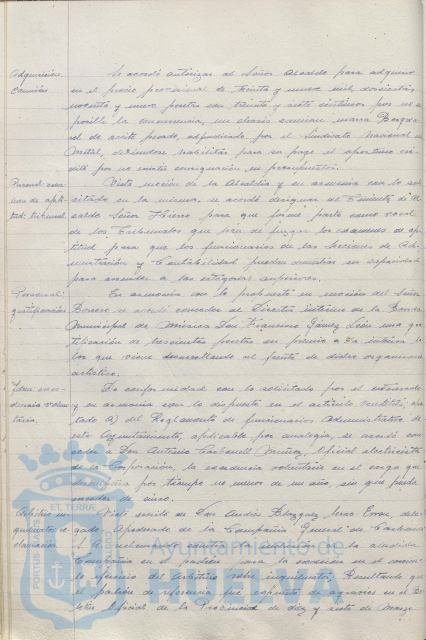 Adquisición
camión
Se acordó autorizar al Señor Alcalde para adquirir
en el precio provisional de treinta y nueve mil doscientas
noventa y nueve pesetas con treinta y siete céntimos por no
posible la concurrencia, un chasis camión marca
de aceite pesado, adjudicado por el Sindicato Nacional
Metal, debiéndose habilitar para su pago el oportuno
por no existir consignación en presupuestos.
Vista moción de la Alcaldía y en armonía con lo
citado en la misma, se acordó designar al Teniente de
calde Señor Hierro para que forme parte como vocal
de los Tribunales que han de juzgar los exámenes de ap
titud para que los funcionarios de las Secciones de Ad
ministración y Contabilidad puedan
para ascender a las categorías superiores.
Personal:
gratificación
En armonía con lo propuesto en moción del Señor
Borrero se acordó conceder al Director interino de la Banda
Municipal de Música Don Francisco Gámez León una gra
tificación de pesetas en premio a la intensa
los que viene desarrollando al frente de dicho organismo
artístico.
Idem
dencia volun
taria.
De conformidad con lo solicitado por el interesado
y en armonía con lo dispuesto en el artículo
tado a) del Reglamento de funcionarios administrativos de
este Ayuntamiento, aplicable por analogía, se acordó con
ceder a Don Antonio Carbonell Muñoz, Oficial electricista
de la Corporación, la excedencia voluntaria en el cargo que
desempeña por tiempo no menor de un año, sin que pueda
exceder de cinco.
Visto escrito de Don Andrés Blázquez
gado Apoderado de la Compañía General de
Compañía en el padrón para la exacción en el
del Arbitrio sobre inquilinato; Resultando que
el padrón de referencia fué expuesto
letín Oficial de la Provincia de diez y siete de Marzo
PORTUS MARIS ET TERRAE CUSTODIA
Ayuntamiento de
HUELVA